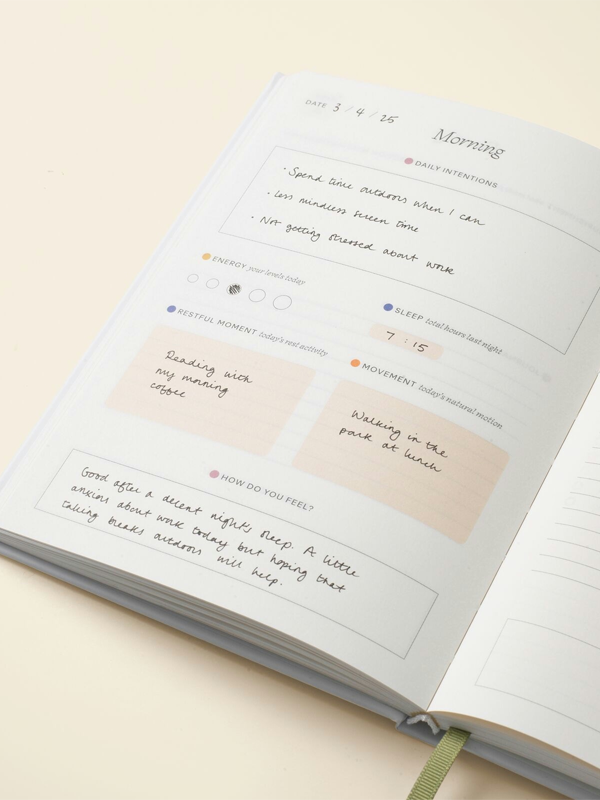 DATE 3 / 4 / 25
Morning
DAILY INTENTIONS
· Spend time outdoors when I can
· less mindless screen time
· Not getting stressed about work
ENERGY your levels today
SLEEP total hours last night
7 : 15
RESTFUL MOMENT today's rest activity
Reading with
my morning
coffee
MOVEMENT today's natural motion
Walking in the
park at lunch
HOW DO YOU FEEL?
Good after a decent night's sleep. A little
anxious about work today but hoping that
taking breaks outdoors will help.